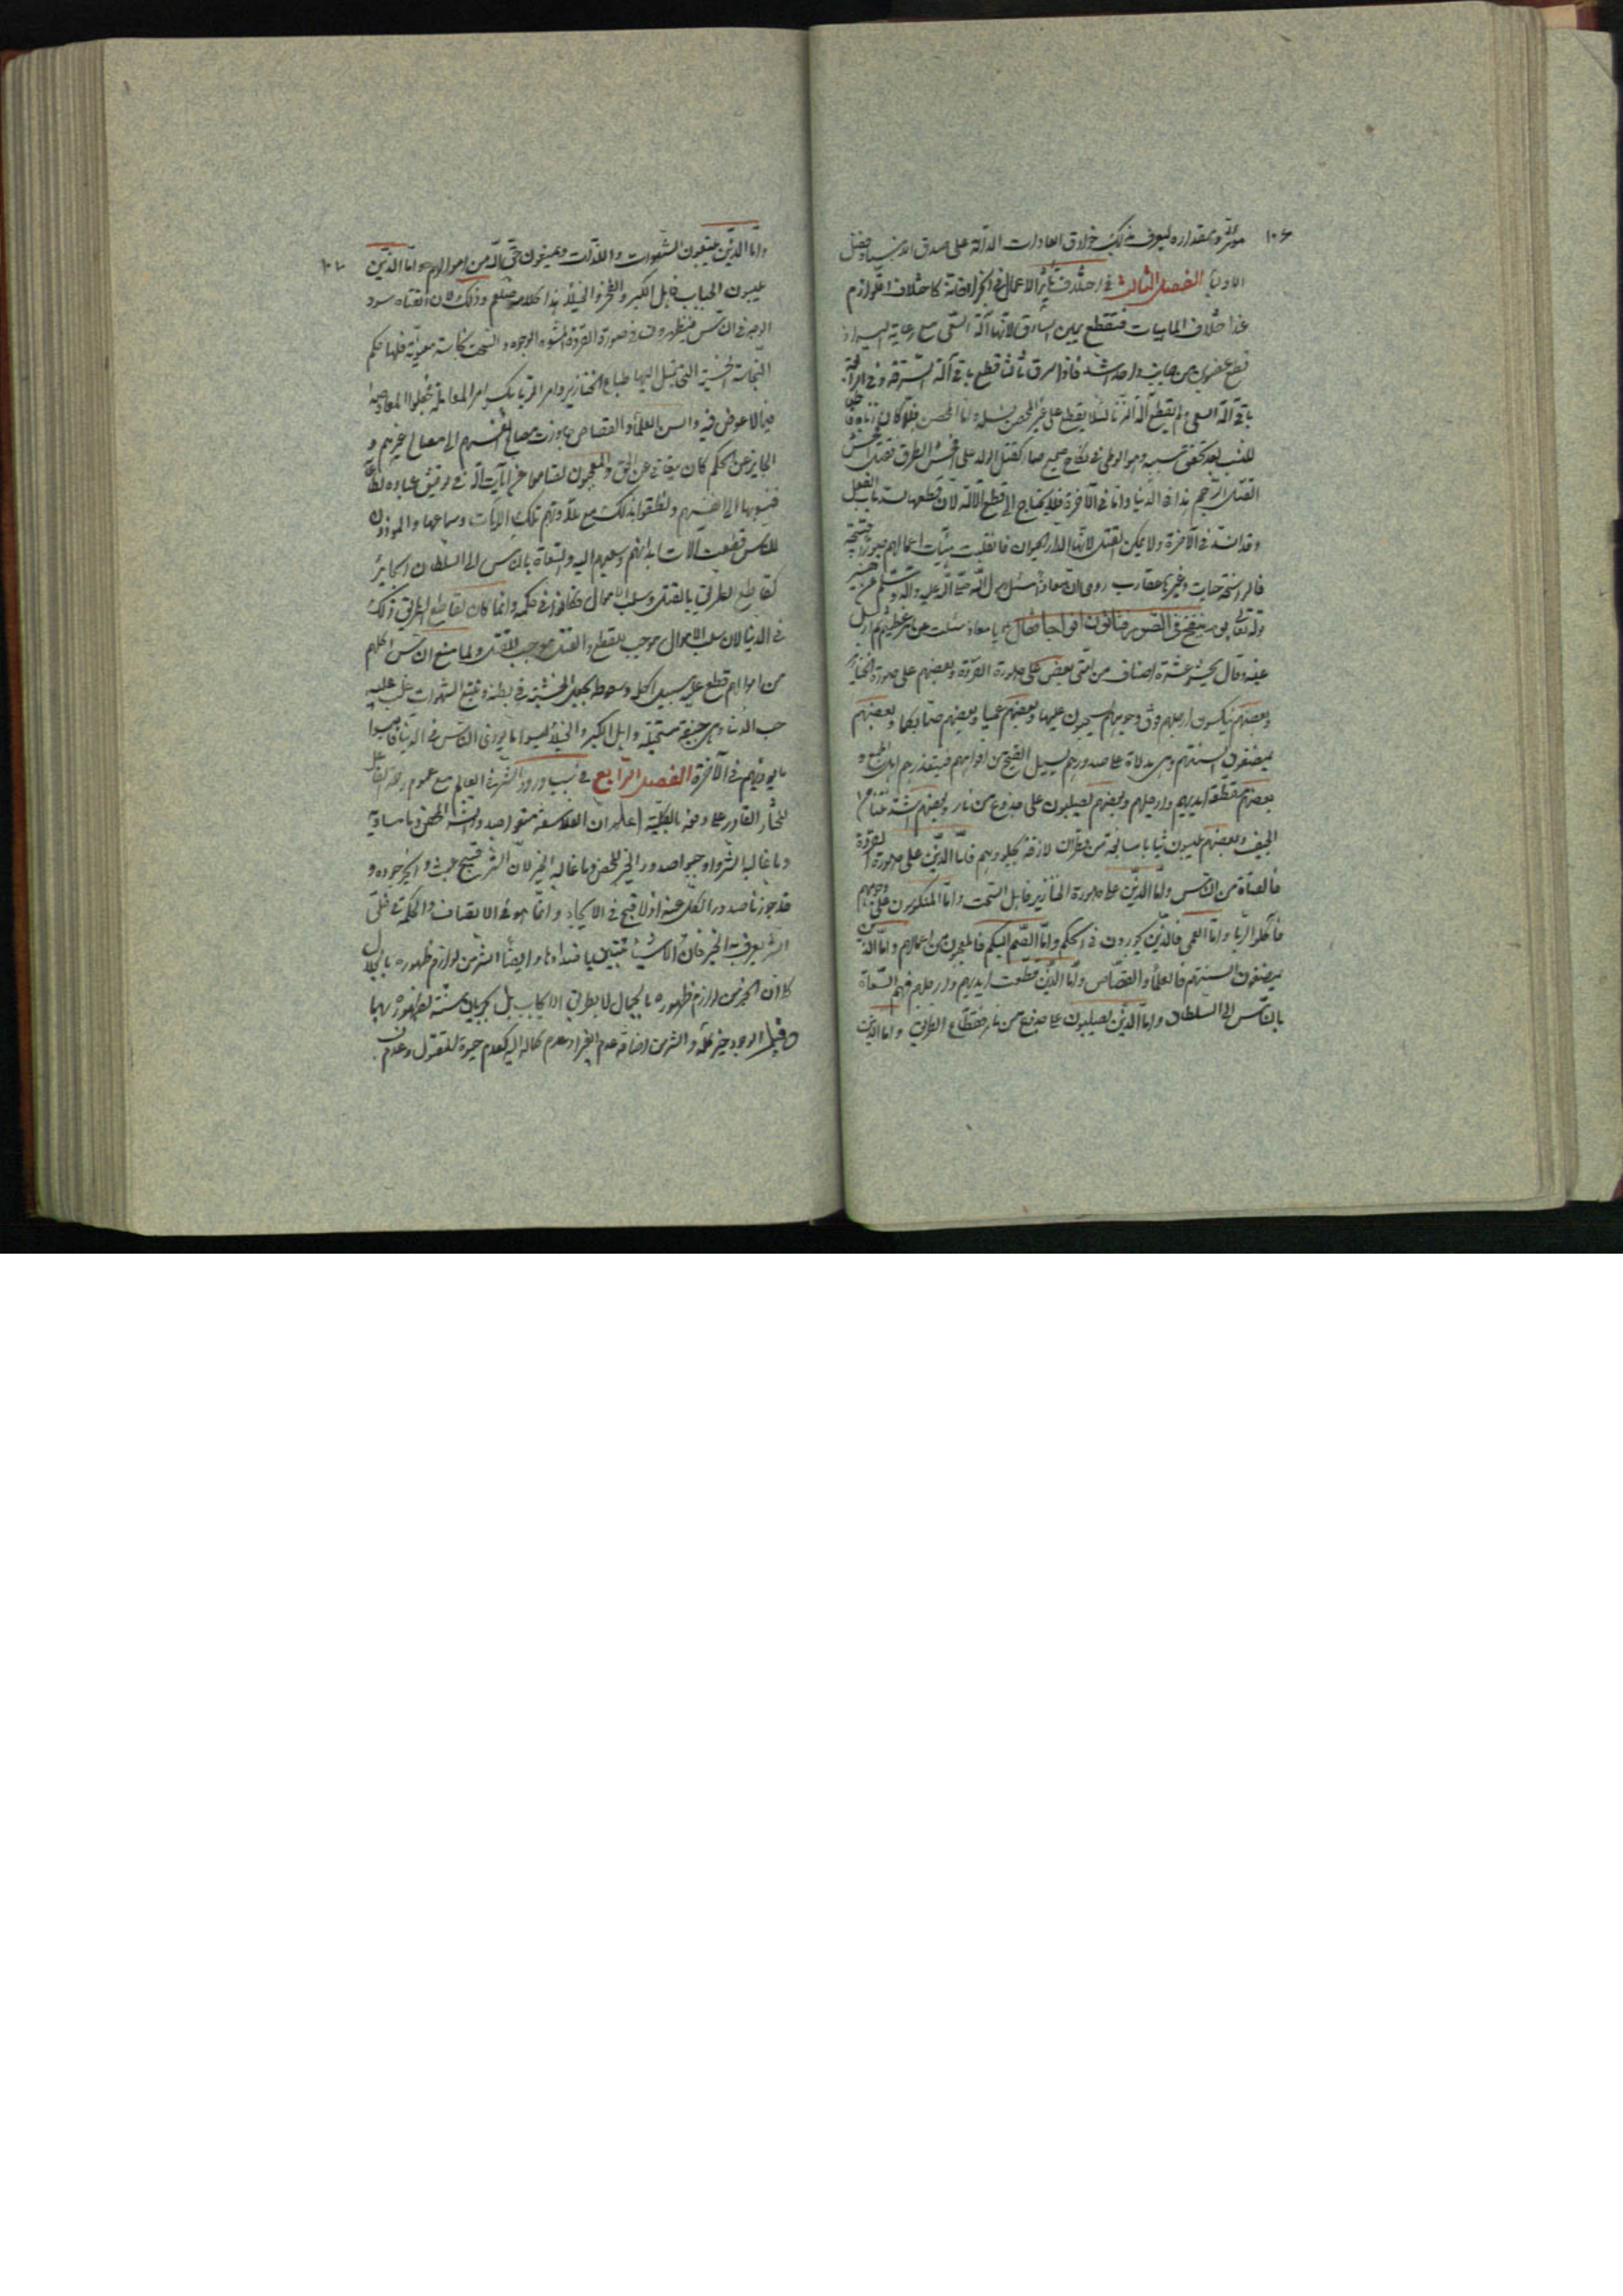 ١٠٦
مؤثر وبمقداره ليعرف بذلك خوارق العادات الدالة على صدق الانبياء وفضل
الاولياء الفصل الثالث في اختلاف تأثير الاعمال في الجزاء كاختلاف اللوازم
عند اختلاف الماهيات فتقطع يمين السارق لانها آلة
قطع عضوين من جانب واحد اشد فاذا سرق ثالثا قطع باقي آلة السرقة
باقي آلة السعي ولم يقطع آلة الزنا لئلا يقطع على غير المحصن نسله واما المحصن فلما كان
للنسب بعد تحقق سببه وهو الوطي في نكاح صحيح صار كقتل الولد على افحش الطرق فقتل افحش
القتل الرجم هذا في الدنيا واما في الآخرة فلا يحتاج الى قطع الآلة لان قطعها لسد باب الفعل
وقد انسد في الآخرة ولا يمكن القتل لانها الدار الحيوان فانقلبت هيئات اعمالهم صورا قبيحة
حيات وغيرها عقارب روي ان معاذا سئل رسول الله صلى الله عليه وآله وسلم عن
قوله تعالى يوم ينفخ في الصور فتأتون افواجا فقال يا معاذ سئلت عن امر عظيم ثم ارسل
عينيه وقال يحشر عشرة اصناف من امتي بعض على صورة القردة وبعضهم على صورة الخنازير
وبعضهم منكسون ارجلهم فوق وجوههم يسحبون عليها وبعضهم عميا وبعضهم صما بكما وبعضهم
يمضغون السنتهم وهي مدلاة على صدورهم يسيل القيح من افواههم فيتقذرهم اهل الجمع و
بعضهم مقطعة ايديهم وارجلهم وبعضهم يصلبون على جذوع من نار وبعضهم اشد نتنا من
الجيف وبعضهم يلبسون ثيابا سابغة من قطران لازقة بجلودهم فاما الذين على صورة القردة
فالقتاة من الناس واما الذين على صورة الخنازير فاهل السحت واما المنكسون على وجوههم
فاكلوا الربا واما العمي فالذين يجورون في الحكم واما الصم البكم فالمعجبون من اعمالهم واما الذين
يمضغون السنتهم فالعلماء والقصاص واما الذين قطعت ايديهم وارجلهم فهم السعاة
بالناس الى السلطان واما الذين يصلبون على جذوع من نار فقطاع الطريق واما الذين
١٠٧
واما الذين يتبعون الشهوات واللذات ويمنعون حق الله من اموالهم واما الذين
يلبسون الجباب فاهل الكبر والفخر والخيلاء هذا كلامه صلعم وذلك لان القتاة سود
الوجه في الناس فيظهرون في صورة القردة المشوه الوجوه والسحت نجاسة معنوية فلها حكم
النجاسة الحسية التي تميل اليها طباع الخنازير وامر الربا بكسر امر المعاملة
فيما لا عوض فيه والسن العلماء والقصاص جاوزت مصالح انفسهم الى مصالح غيرهم و
الجاير عن الحكم كان يتعامى عن الحق والمعجبون تصامموا عن آيات الله في توفيق عباده للطاعة
فنسبوها الى انفسهم ونطقوا بذلك مع تلاوتهم تلك الآيات وسماعها والموذون
للناس قطعت آلات ابدانهم وسعيهم اليه والسعاة بالناس الى السلطان الجائر
كقاطع الطريق بالقتل وسلب الاموال فكانوا في حكمه وانما كان لقاطع الطريق ذلك
في الدنيا لان سلب الاموال موجب للقطع والقتل موجب للقتل ولما منع الناس اكلهم
من اموالهم قطع عليهم سبيل اكله وسقوط الجيف الخبيثة في بطنه وتتبع الشهوات غلب عليه
حب الدنيا وهي جيفة مستحيلة واهل الكبر والخيلاء لبسوا ما يؤذي الناس في الدنيا فالبسوا
ما يوذيهم في الآخرة الفصل الرابع في سبب ورود الشر في العالم مع عموم رحمة الفاعل
المختار القادر على دفعه بالكلية اعلم ان الفلاسفة منعوا صدور الشر المحض وما يساويه
وما غالبه الشر واوجبوا صدور الخير المحض وما غالبه الخير لان الشر قبيح عبث والخير جوده و
قد جوزنا صدور الكل عنه اذ لا قبح في الايجاد وانما هو في الاتصاف والحكمة في خلق
الشر يعرف به الخير فان الاشياء تتبين باضدادها وايضا الشر من لوازم ظهوره بالجلال
كما ان الخير من لوازم ظهوره بالجمال لا بطريق الايجاب بل بجريان سنته لظهوره بهما
وقيل الوجود خير كله والشر من اضافة عدم الغير او عدم كماله اليه كعدم حيوة المقتول وعدم